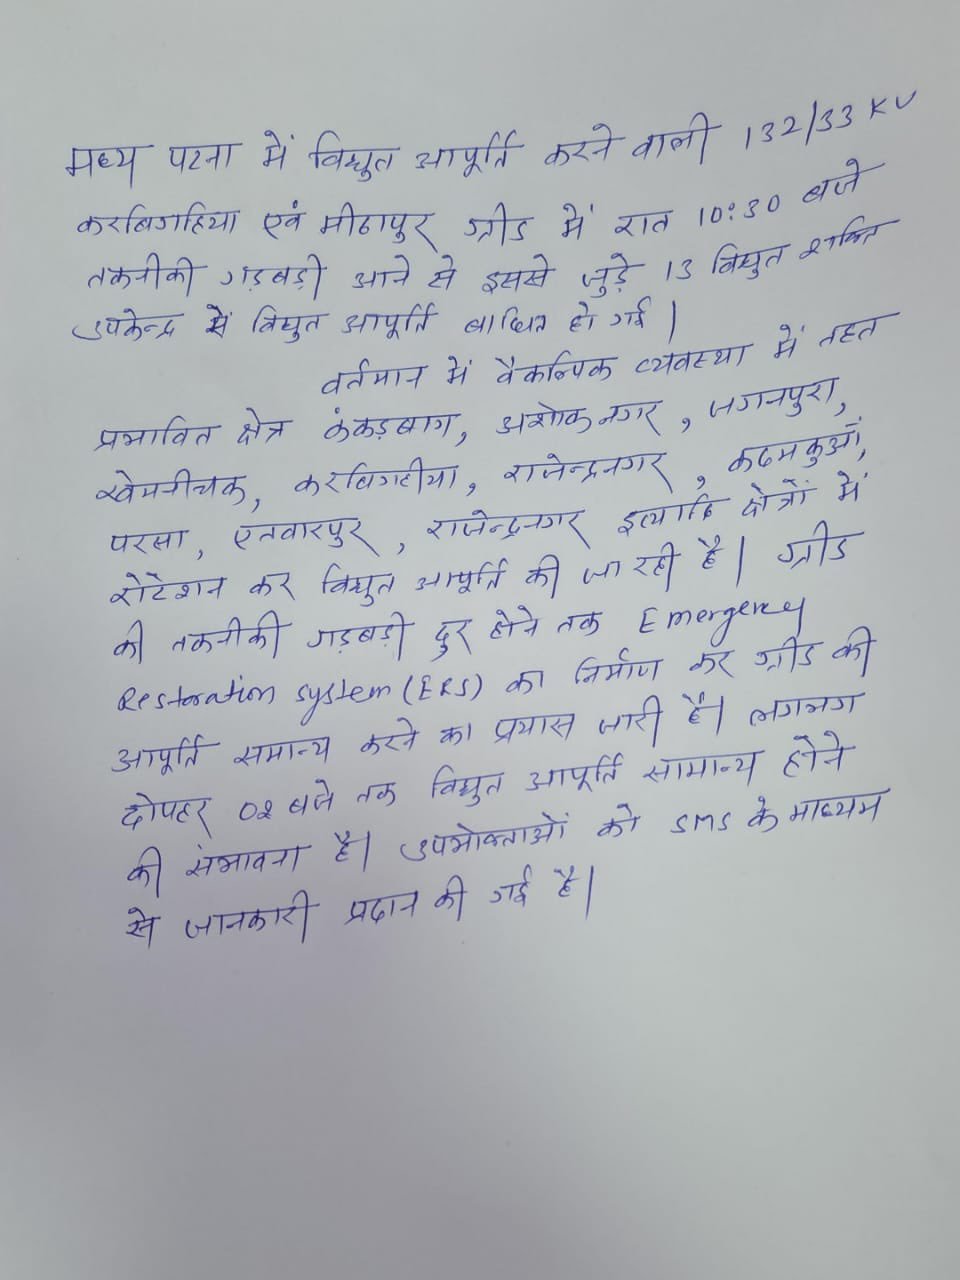 मध्य पटना में विद्युत आपूर्ति करने वाली 132/33 KV
करबिगहिया एवं मीठापुर ग्रीड में रात 10:30 बजे
तकनीकी गड़बड़ी आने से इससे जुड़े 13 विद्युत शक्ति
उपकेन्द्र में विद्युत आपूर्ति बाधित हो गई |
वर्तमान में वैकल्पिक व्यवस्था में तहत
प्रभावित क्षेत्र कंकड़बाग, अशोक नगर, जगनपुरा,
खेमनीचक, करबिगहीया, राजेन्द्रनगर, कदमकुआँ,
परसा, एतवारपुर, राजेन्द्रनगर इत्यादि क्षेत्रों में
रोटेशन कर विद्युत आपूर्ति की जा रही है | ग्रीड
की तकनीकी गड़बड़ी दुर होने तक Emergency
Restoration System (ERS) का निर्माण कर ग्रीड की
आपूर्ति समान्य करने का प्रयास जारी है | लगभग
दोपहर 02 बजे तक विद्युत आपूर्ति सामान्य होने
की संभावना है | उपभोक्ताओं को SMS के माध्यम
से जानकारी प्रदान की गई है |